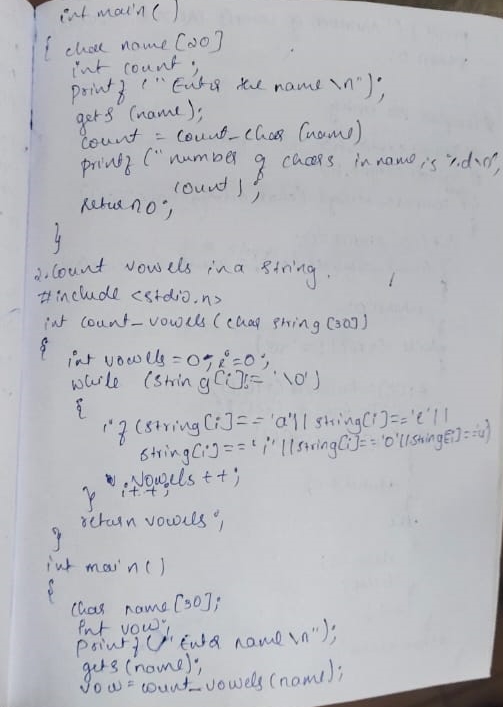 int main()
{ char name [20]
int count;
printf ("Enter the name \n");
gets (name);
count = count_char (name)
printf ("number of chars in name is %d\n",
count);
return 0;
}
2. Count vowels in a string.
#include <stdio.h>
int count_vowels (char string [30])
{
int vowels = 0, i = 0;
while (string [i] != '\0')
{
if (string [i] == 'a' || string [i] == 'e' ||
string [i] == 'i' || string [i] == 'o' || string [i] == 'u')
vowels ++;
i++;
}
return vowels;
}
int main ()
{
char name [30];
int vow;
printf ("Enter name \n");
gets (name);
vow = count_vowels (name);